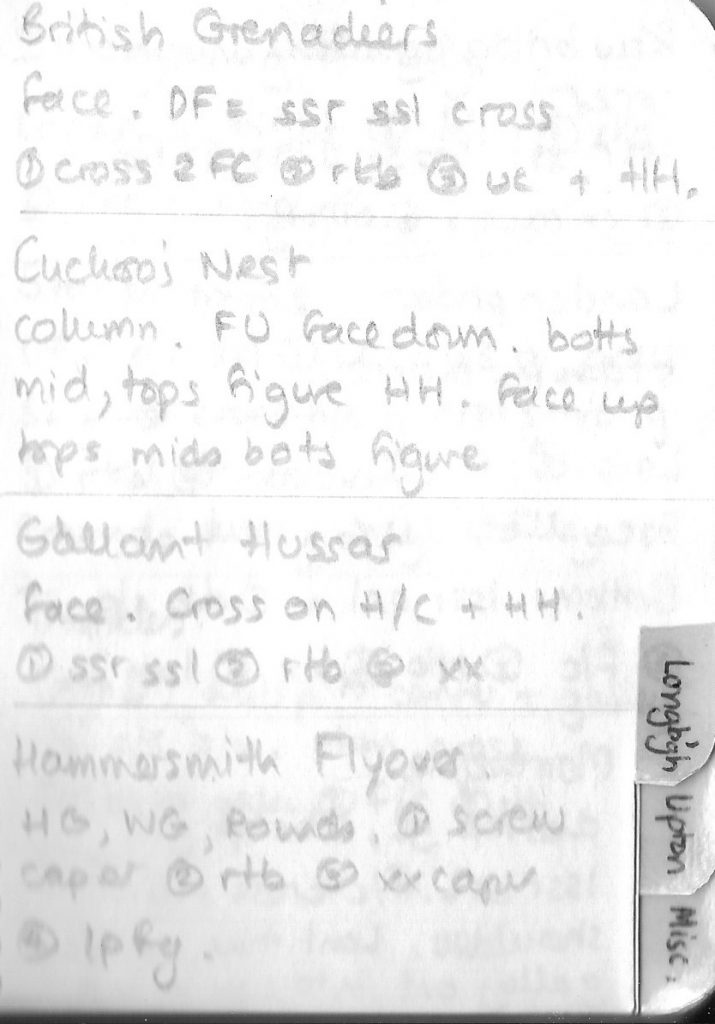 British Grenadiers
face. DF = ssr ssl cross
① cross 2 FC ② rtb ③ uc + HH.
Cuckoo's Nest
column. FU face down. botts
mid, tops figure HH. face up
tops mids bots figure
Gallant Hussar
face. Cross on H/C + HH.
① ssr ssl ② rtb ③ xx
Hammersmith Flyover.
HG, WG, Rounds. ① screw
caper ② rtb ③ xx caper
④ 1p fig.
Longb'gh
Upton
Misc.